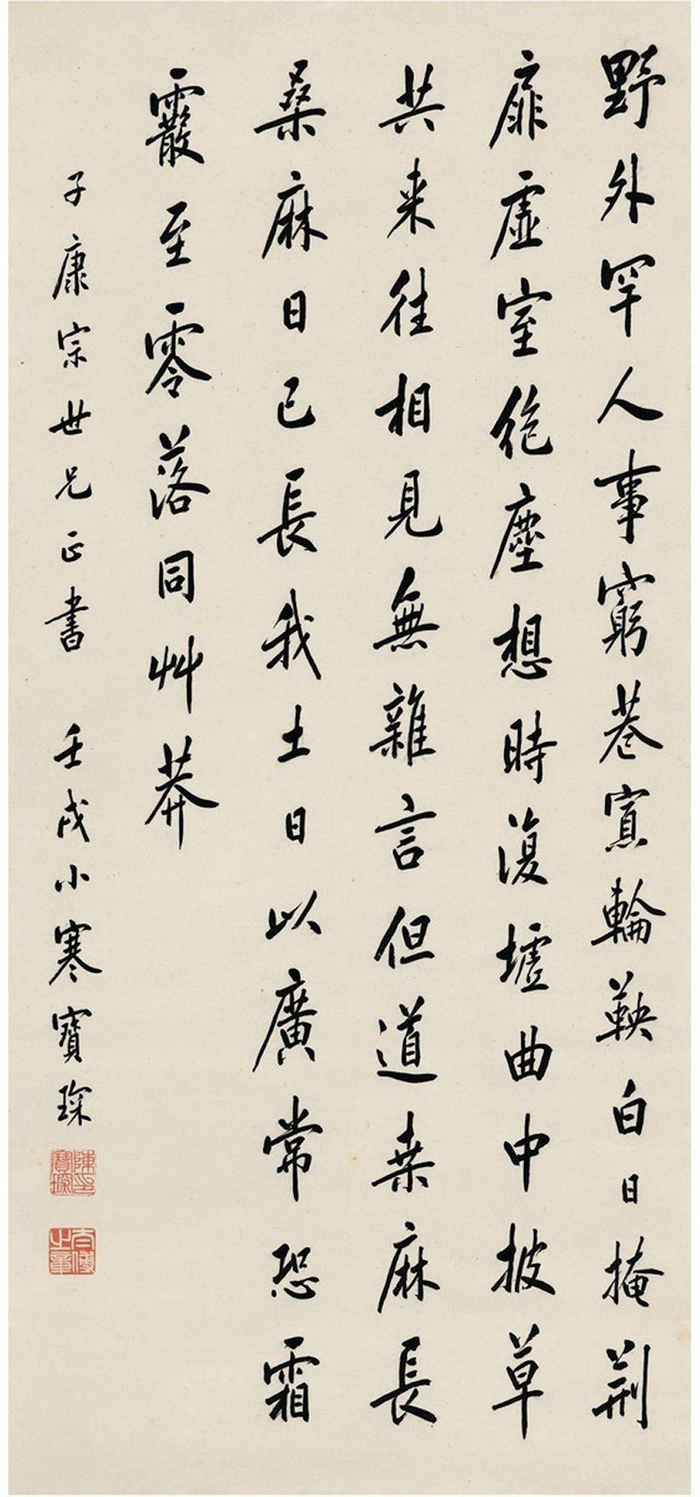 野外罕人事窮巷寡輪鞅白日掩荆
扉虛室絶塵想時復墟曲中披草
共来往相見無雜言但道桒麻長
桑麻日已長我土日以廣常恐霜
霰至零落同艸莽
子康宗世兄正書 壬戌小寒寶琛
陳寶琛印
太傅之章